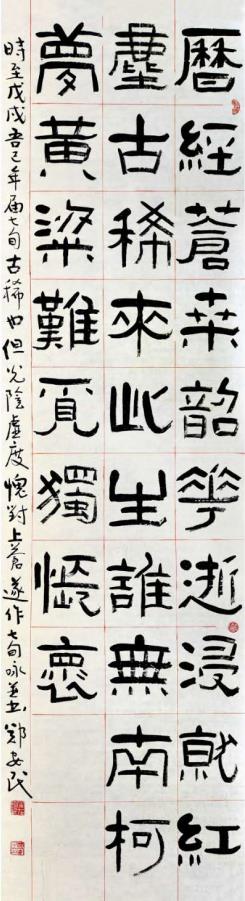 曆經蒼桑韶華逝浸就紅
塵古稀來此生誰無南柯
夢黃粱難覓獨悵懷
時至戊戌吾已年届七旬古稀也但光陰虛度愧對上蒼遂作七旬咏並書鄭安民